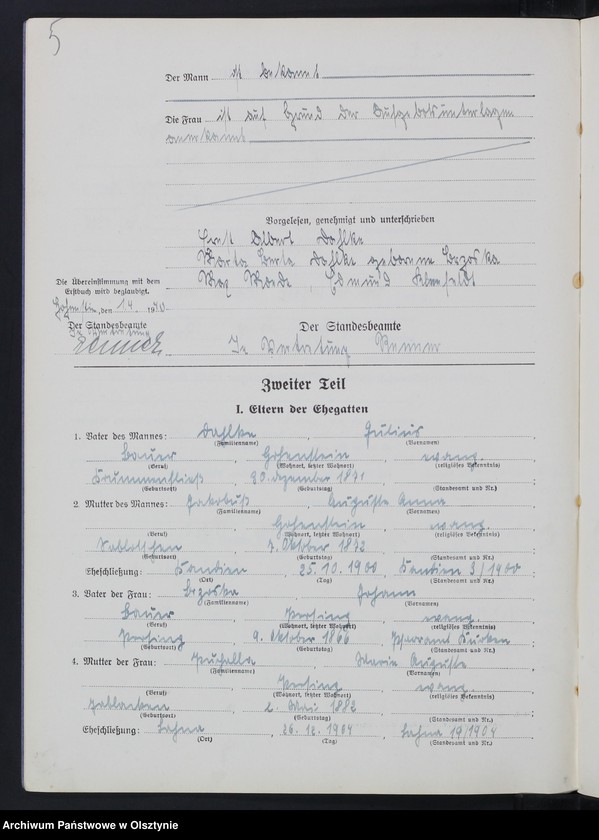 5
Der Mann ist bekannt
Die Frau ist auf Grund der Aufgebotsunterlagen
anerkannt
Vorgelesen, genehmigt und unterschrieben
Ernst Albert Dahlke
Marta Berta Dahlke geborene Brzoska
Max Edmund
Die Übereinstimmung mit dem
Erstbuch wird beglaubigt.
Hohenstein, den 14. 1940
Der Standesbeamte
In Vertretung
Der Standesbeamte
In Vertretung
Zweiter Teil
I. Eltern der Ehegatten
1. Vater des Mannes: Dahlke, Julius,
(Familienname) (Vornamen)
Bauer, Hohenstein, evang.
(Beruf) (Wohnort, letzter Wohnort) (religiöses Bekenntnis)
20. Dezember 1871
(Geburtsort) (Geburtstag) (Standesamt und Nr.)
2. Mutter des Mannes: Auguste Anna
(Familienname) (Vornamen)
Hohenstein, evang.
(Beruf) (Wohnort, letzter Wohnort) (religiöses Bekenntnis)
7. Oktober 1872
(Geburtsort) (Geburtstag) (Standesamt und Nr.)
Eheschließung: Kandien, 25. 10. 1900, Kandien 3/1900
(Ort) (Tag) (Standesamt und Nr.)
3. Vater der Frau: Brzoska, Johann
(Familienname) (Vornamen)
Bauer, Persing, evang.
(Beruf) (Wohnort, letzter Wohnort) (religiöses Bekenntnis)
Persing, 9. Oktober 1866, Pfarramt Kurken
(Geburtsort) (Geburtstag) (Standesamt und Nr.)
4. Mutter der Frau: Puchalla, Marie Auguste
(Familienname) (Vornamen)
Persing, evang.
(Beruf) (Wohnort, letzter Wohnort) (religiöses Bekenntnis)
2. Mai 1882
(Geburtsort) (Geburtstag) (Standesamt und Nr.)
Eheschließung: Lahna, 26. 12. 1904, Lahna 19/1904
(Ort) (Tag) (Standesamt und Nr.)
Archiwum Państwowe w Olsztynie